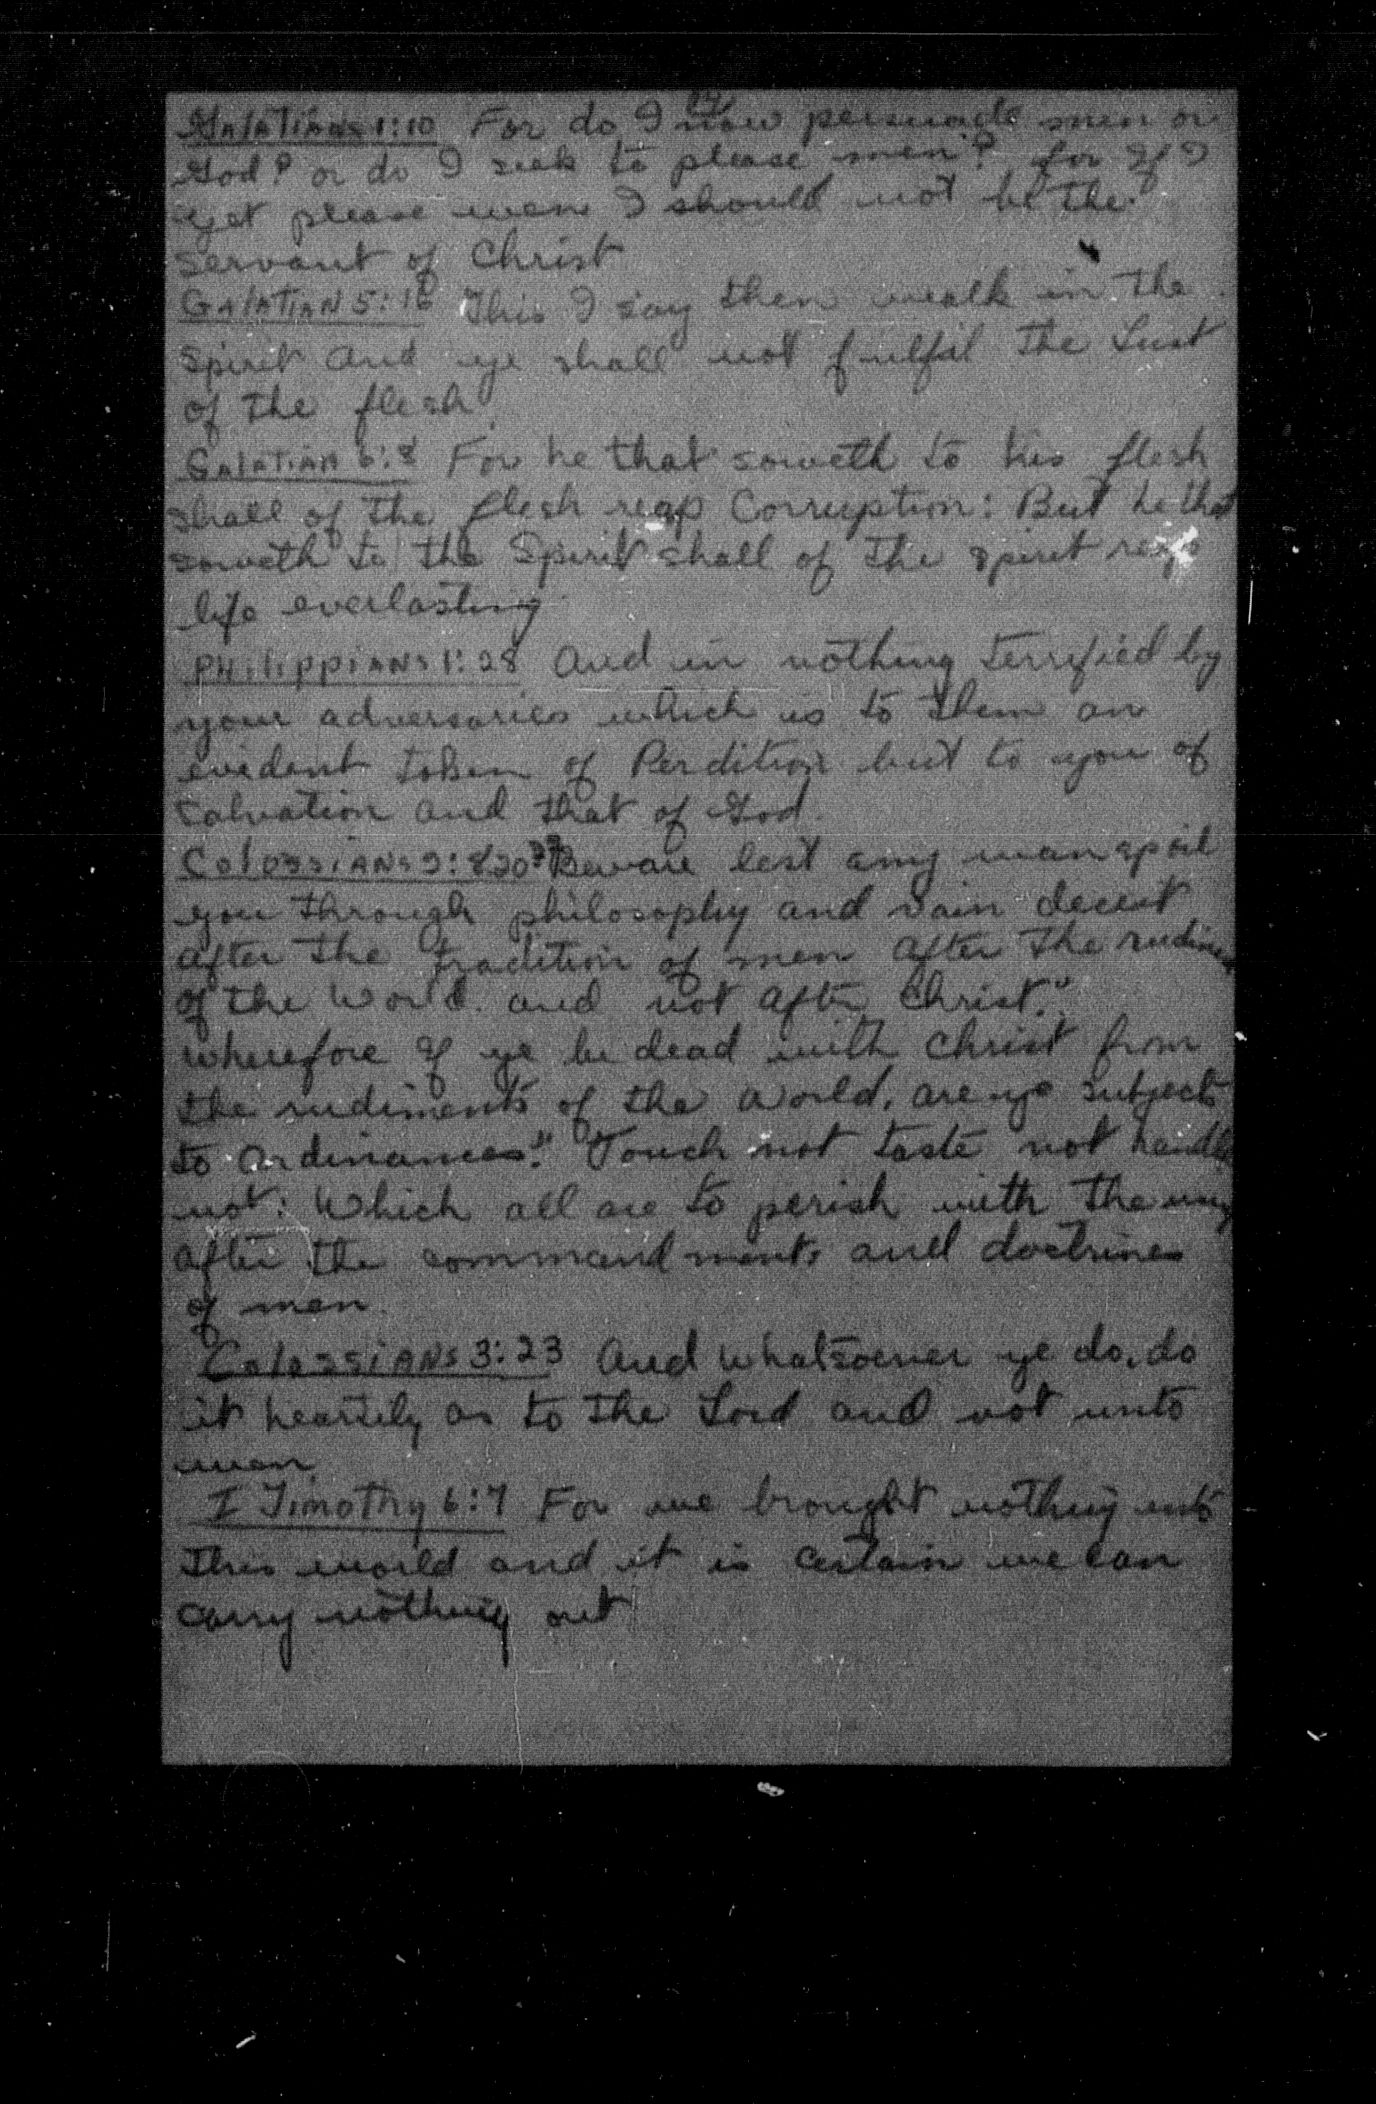 Galatians 1:10 For do I now persuade men or
God? or do I seek to please men? for If I
yet please men I should not be the
servant of Christ
Galatian 5:16 This I say then walk in the
Spirit and ye shall not fulfil the Lust
of the flesh.
Galatian 6:8 For he that soweth to his flesh
shall of the flesh reap Corruption: But he that
soweth to the Spirit shall of the spirit reap
life everlasting
Philippians 1:28 And in nothing terrified by
your adversaries which is to them an
evident token of Perdition but to you of
salvation and that of God.
Colossians 2:8,20 Beware lest any man spoil
you through philosophy and vain deceit
after the tradition of men after the
of the World. and not after Christ."
Wherefore If ye be dead with Christ from
the rudiments of the World, are ye subject
to Ordinances." "Touch not taste not handle
not: Which all are to perish with the using
after the commandments and doctrines
of men.
Colossians 3:23 And whatsoever ye do, do
it heartily as to the Lord and not unto
men.
I Timothy 6:7 For we brought nothing into
This world and it is Certain we can
Carry nothing out